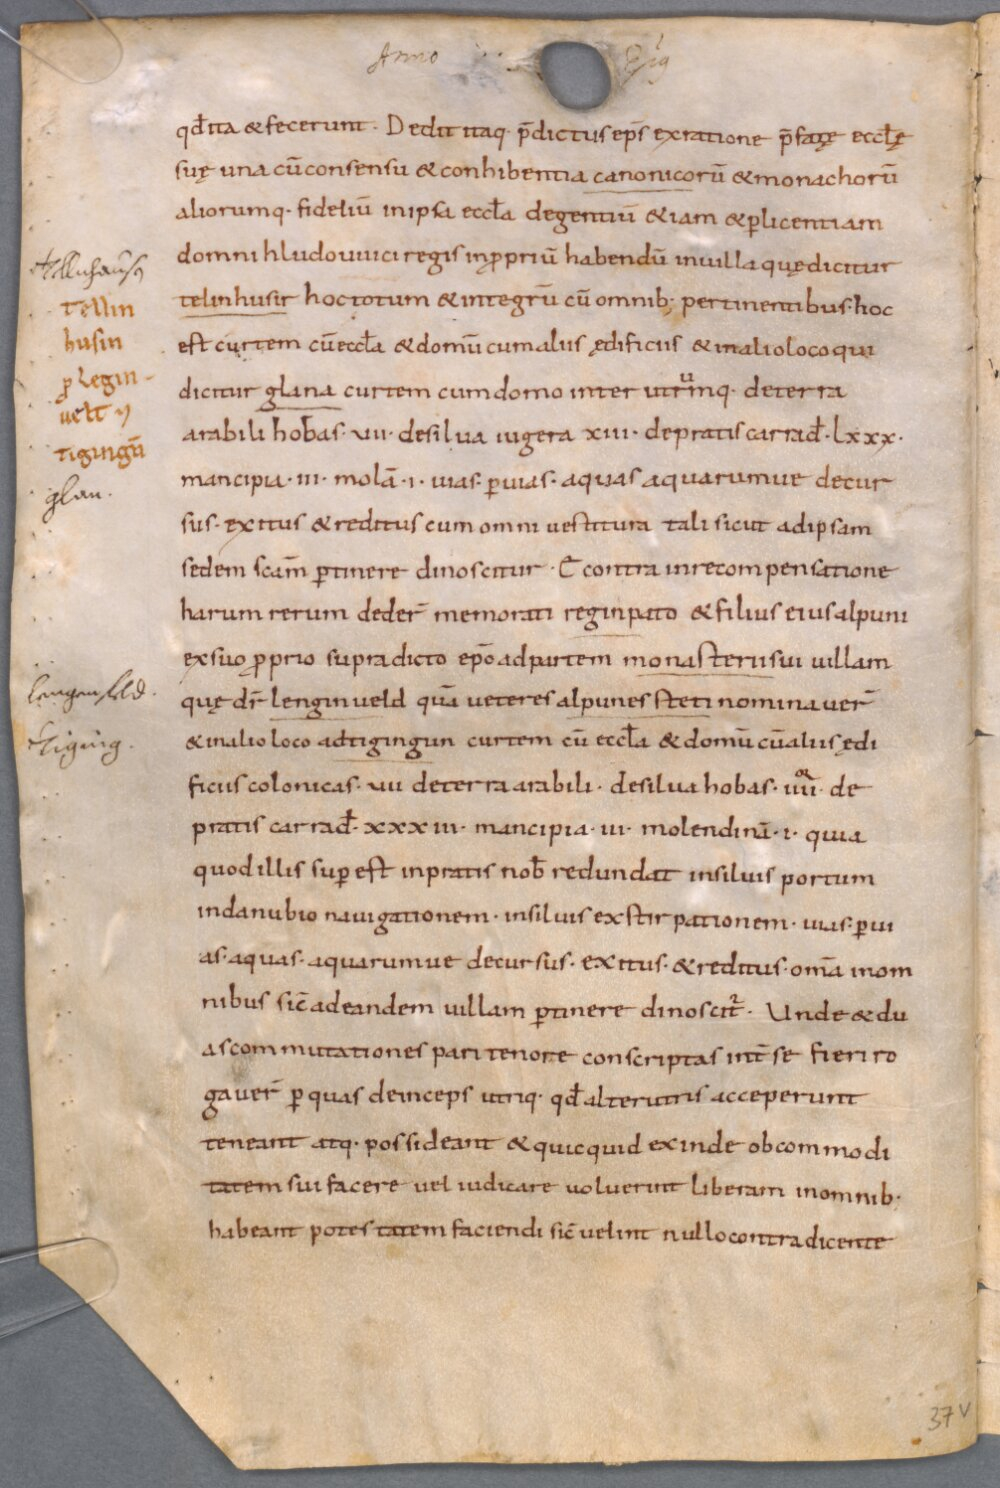 Anno
qđ ita & fecerunt. Dedit itaq· p̄dictus ep̄s ex ratione p̄fatę eccłę
suę una cū consensu & conhibentia canonicorū & monachorū
aliorumq· fideliū in ipsa eccła degentiū & iam & p̱ licentiam
domni hludouuici regis in ꝓpriū habendū in uilla quę dicitur
telinhusir hoc totum & integrū cū omnib; pertinentibus· hoc
est curtem cū eccła & domū cum aliis ędificiis & in alio loco qui
dicitur glana curtem cum domo inter utrumq· de terra
arabili hobas· uii· de silua iugera xiii· de pratis carrađ· lxxx·
mancipia· iii· molā· i· uias· ꝑuias· aquas aquarumue decur
sus· exitus & reditus cum omni uestitura tali sicut ad ipsam
sedem scām ꝑtinere dinoscitur· E contra in recompensatione
harum rerum dedeř memorati reginpato & filius eius alpuni
ex suo ꝓprio supradicto ep̄o ad partem monasterii sui uillam
quę dr̄ lenginueld quā ueteres alpunessteti nominaueř
& in alio loco ad tigingun curtem cū eccła & domū cū aliis ędi
ficiis colonicas· uii de terra arabili· de silua hobas· iiii or· de
pratis carrađ· xxxiii· mancipia· iii· molendinū· i· quia
quod illis suꝑest in pratis nob̄ redundat in siluis portum
in danubio nauigationem· in siluis exstirpationem· uias· ꝑui
as· aquas· aquarumue decursus· exitus· & reditus· om̄a in om
nibus sic̄ ad eandem uillam ꝑtinere dinoscit᷑· Unde & du
as commutationes pari tenore conscriptas int̄ se fieri ro
gaueř ꝑ quas deinceps utriq· qđ alterutris acceperunt
teneant atq· possideant & quicquid exinde ob commodi
tatem sui facere uel iudicare uoluerint liberam in omnib·
habeant potestatem faciendi sic̄ uelint nullo contradicente
Tellnhausn
Tellin
husin
ꝓ Legin-
velt
tigingū
glan.
Lengenfeld.
Tiging.
37v